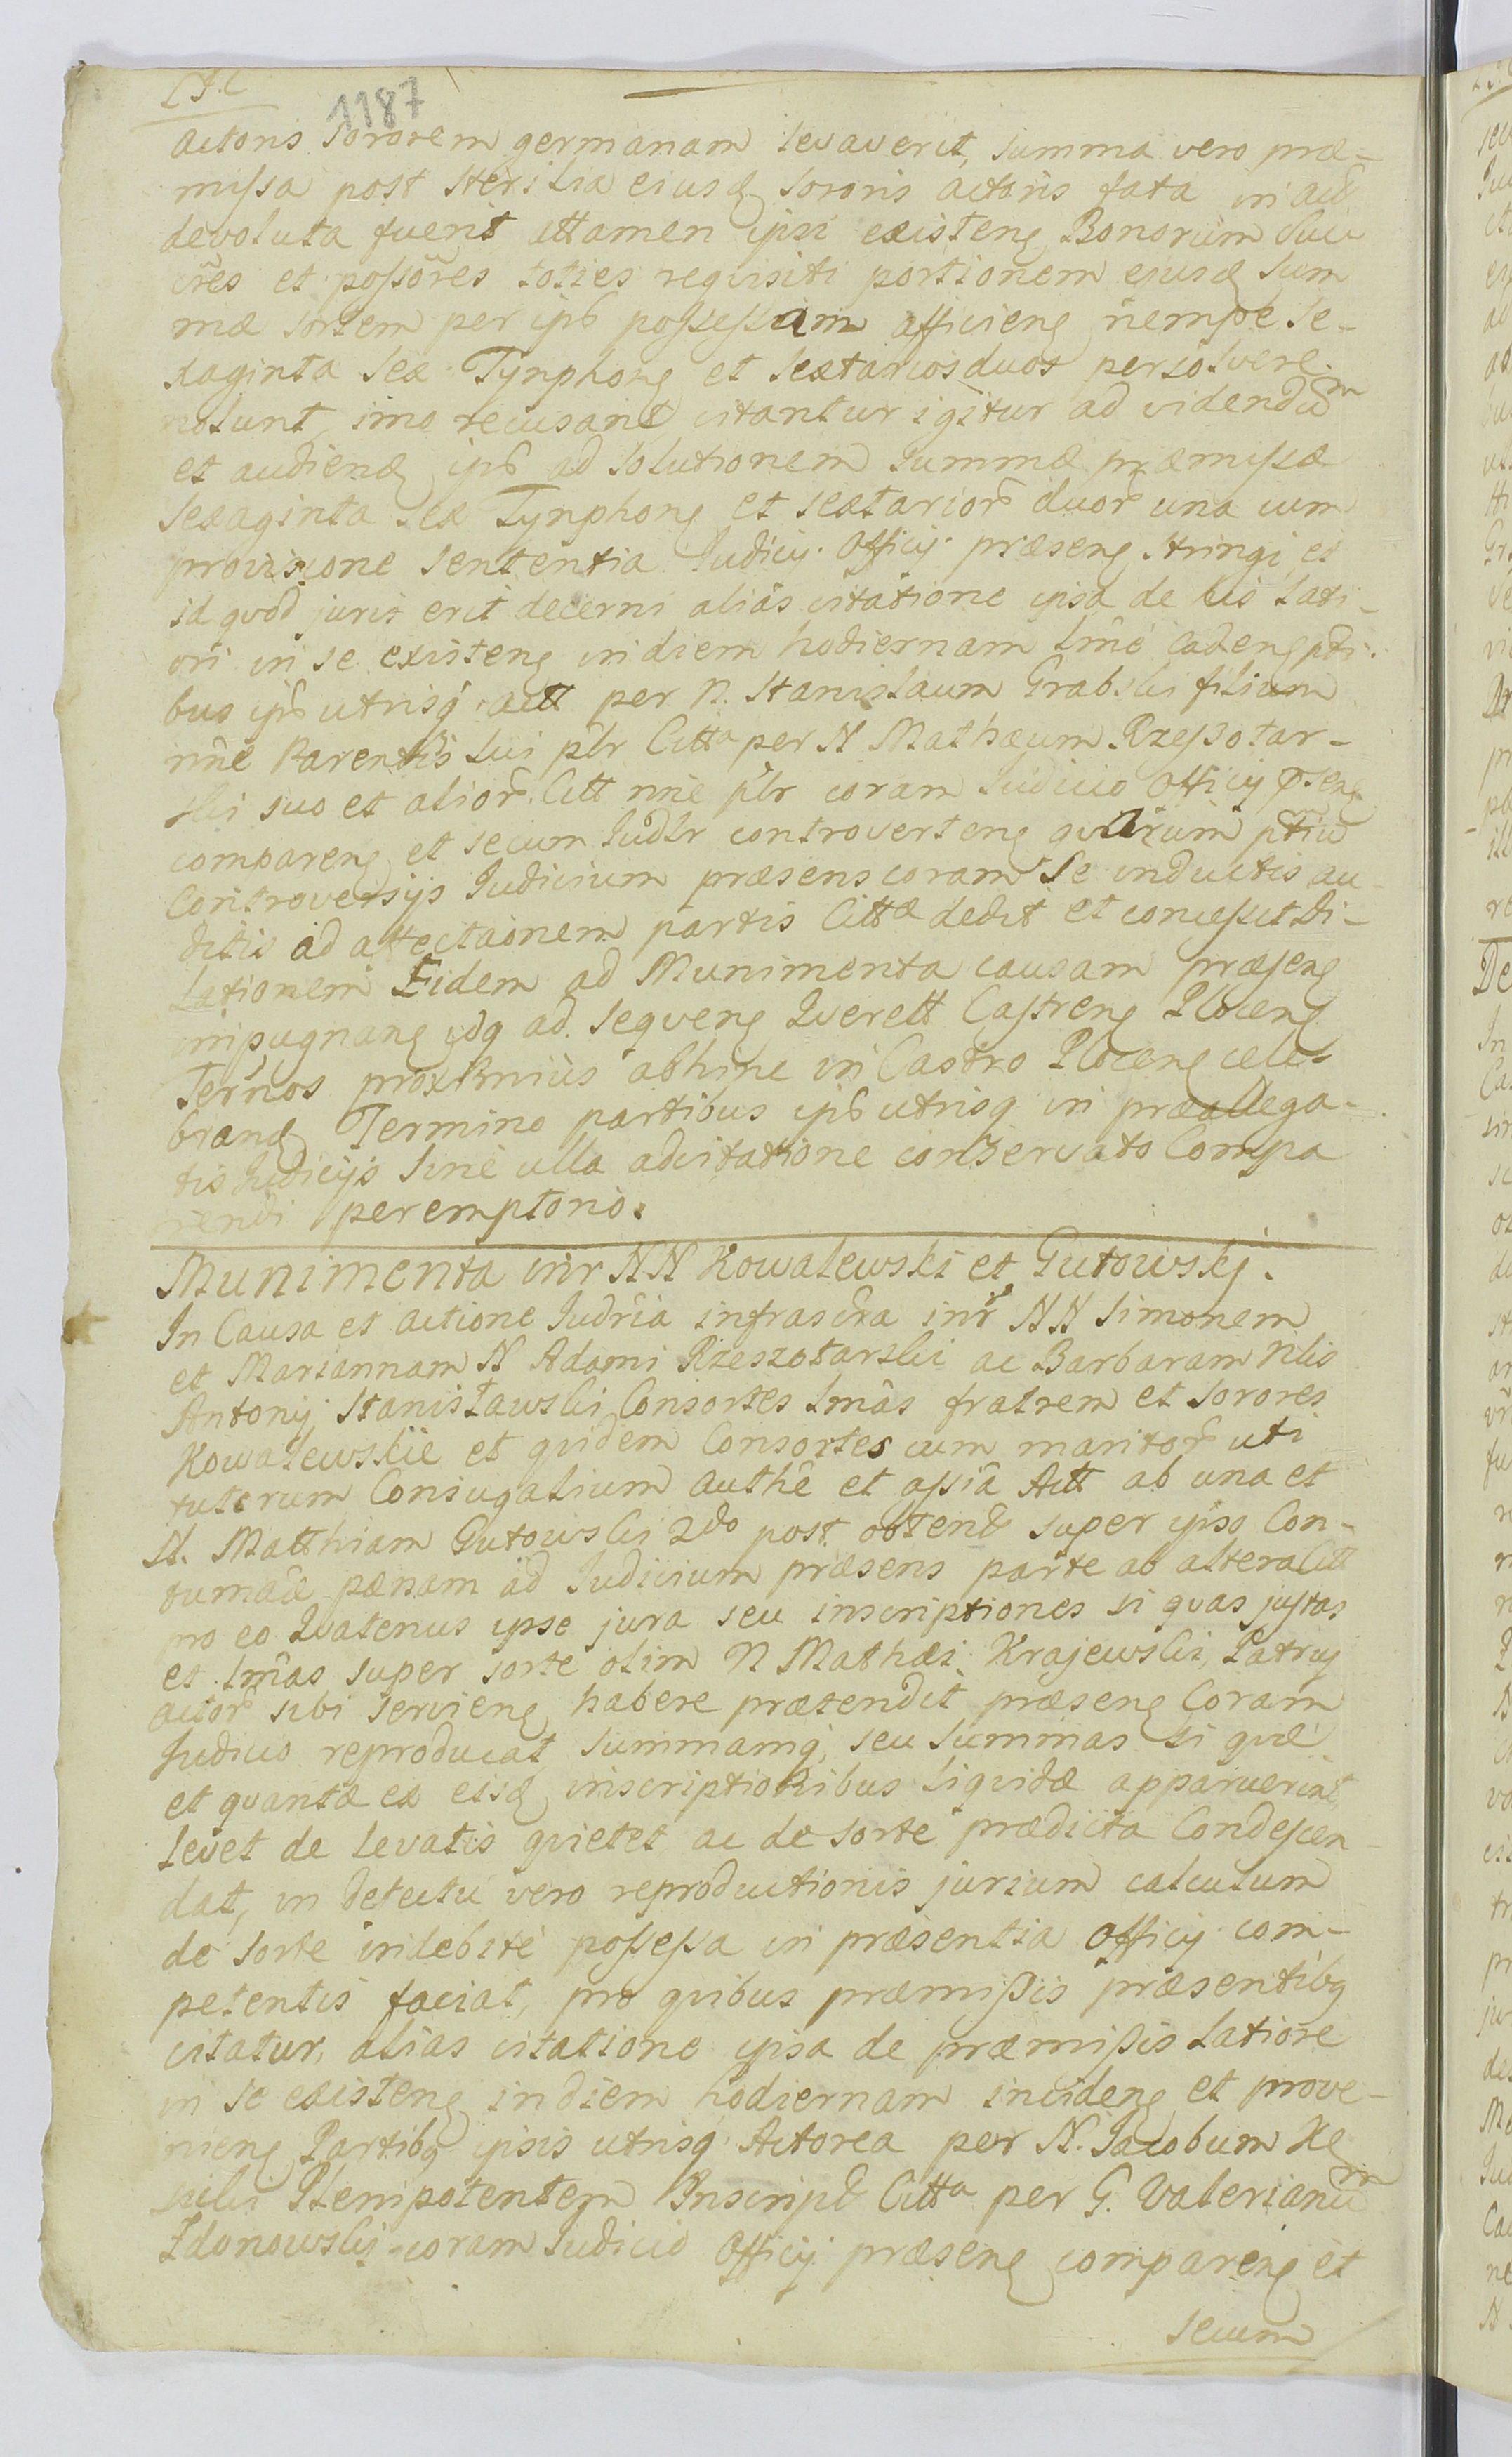 1187
actoris sororem germanam levaverit, summa vero præ-
missa post sterilia eiusd sororis actoris fata in act
devoluta fuerit attamen ipsi existeng Bonorum Succ
cres et possores toties requisiti portionem eiusd sum
mæ sortem per ips possessam afficieng nempe se-
xaginta sex Tynphong et sextarios duos persolvere
nolunt, imo recusant citantur igitur ad videndum
et audiend ips ad solutionem summæ præmissæ
sexaginta sex Tynphong et sextarior duor una cum
provisione sententia Judicij Officij præseng stringi et
id quod juris erit decerni alias citatione ipsa de his lati-
ori in se existeng in diem hodiernam lme cadeng pti-
bus ips utrisq actt per N. Stanislaum Grabski filium
nne Parentis sui plr Citta per N Mathæum Rzeszotar-
ski suo et alior Citt nne plr coram Judicio Officij pseng
compareng et secum Judlr controverteng quarum ptium
Controversijs Judicium præsens coram se inductis au-
ditis ad affectaonem partis Cittæ dedit et concessit Di-
lationem Eidem ad Munimenta causam præseng
impugnang idq ad sequeng Querell Castreng Ploceng
Ternos proximius abhinc in Castro Ploceng cele-
brand Termino partibus ips utrisq in præallega-
tis Judicijs sine ulla adcitatione conservato Compa
rendi peremptorio.
Munimenta inr NN Kowalewski et Gutowskj.
In Causa et actione Judria infrascra inr NN Simonem
et Mariannam N Adami Rzeszotarski ac Barbaram Nlis
Antonij Stanisławski Consortes lmas fratrem et sorores
Kowalewskie et quidem Consortes cum maritor uti
tutorum Coniugalium authe et assia Actt ab una et
N. Matthiam Gutowski 2do post obtent super ipso Con-
tumaciæ pænam ad Judicium præsens parte ab altera Citt
pro eo Quatenus ipse jura seu inscriptiones si quas justas
et lmas super sorte olim N Mathæi Krajewski, Patruj
actor sibi servieng habere prætendit præseng Coram
Judicio reproducat summamq, seu summas si quæ
et quantæ ex eisd inscriptionibus liquidæ apparuerint,
levet de levatis quietet ac de sorte prædicta Condescen-
dat, in defectu vero reproductionis jurium calculum
de sorte indebite possessa in præsentia Officij com-
petentis faciat, pro quibus præmissis præsentibq
citatur, alias citatione ipsa de præmissis latiore
in se existeng in diem hodiernam incideng et prove-
nieng Partibq ipsis utrisq Actorea per N. Jacobum Ke
picki Plenipotentem Inscript Citta per G. Valerianum
Zdonowskj coram Judicio Officij præseng compareng et
secum